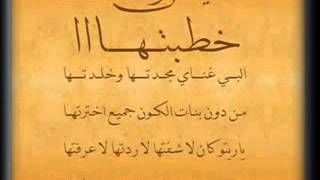 خطبتهااا
البي غناي مجدتها وخلدتها
من دون بنات الكون جميع اخترتها
ياريتو كان لاشفتها لاردتها لاعرفتها